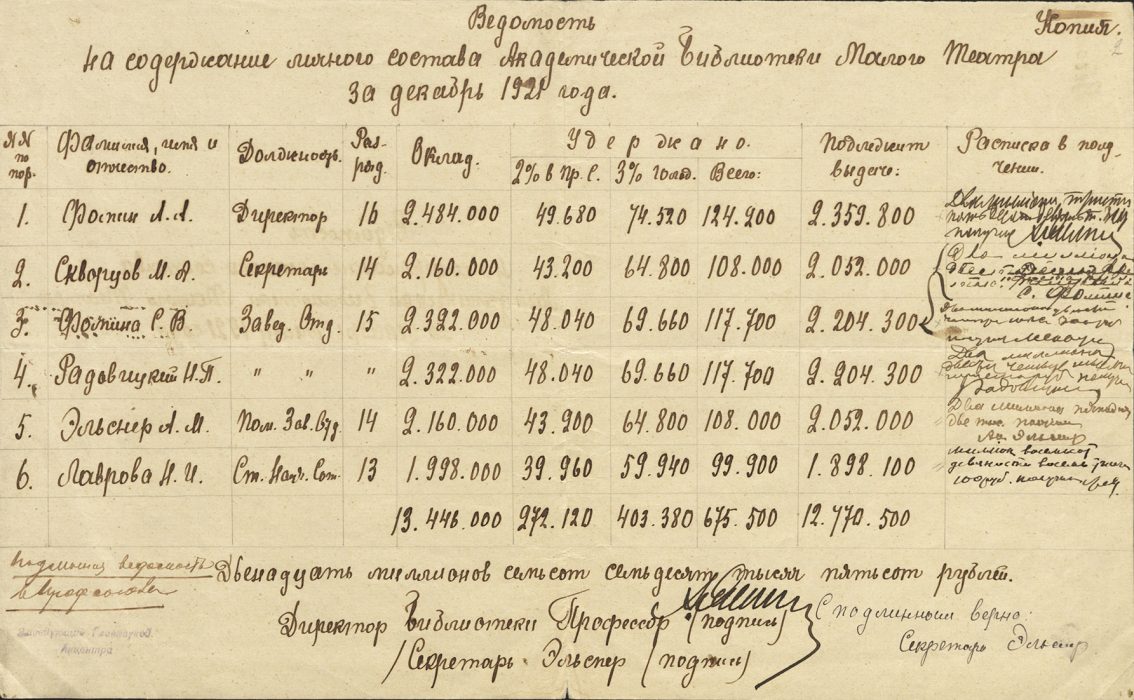 Ведомость
Копия.
2
на содержание личного состава Академической Библиотеки Малого Театра
за декабрь 1921 года.
NN по пор. Фамилия, имя и отчество. Должность. Раз-ряд. Оклад. Удержано. Подлежит выдаче: Расписка в полу-чении.
2% в Пр. С. 3% голод. Всего:
1. Фомин А. А. Директор 16 2.484.000 49.680 74.520 124.200 2.359.800 Два миллиона триста
получил
2. Скворцов М. А. Секретарь 14 2.160.000 43.200 64.800 108.000 2.052.000 Два миллиона
С. Фомина
3. Фомина С. В. Завед. Отд. 15 2.322.000 48.040 69.660 117.700 2.204.300
4. Радовицкий Н. П. " " " 2.322.000 48.040 69.660 117.700 2.204.300 Два миллиона
двести четыре тысячи
5. Эльснер А. М. Пом. Зав. Отд. 14 2.160.000 43.200 64.800 108.000 2.052.000 Два миллиона пятьдесят
две тыс. получил
Ал. Эльснер
6. Лаврова Н. И. 13 1.998.000 39.960 59.940 99.900 1.898.100 миллион восемьсот
девяносто восемь тысяч
100 руб. получила
13.446.000 272.120 403.380 675.500 12.770.500
Подлинная ведомость
в Профсоюзе
Двенадцать миллионов семьсот семьдесят тысяч пятьсот рублей.
Директор Библиотеки Профессор (подпись)
С подлинным верно:
/Секретарь Эльснер (подпись)
Секретарь Эльснер